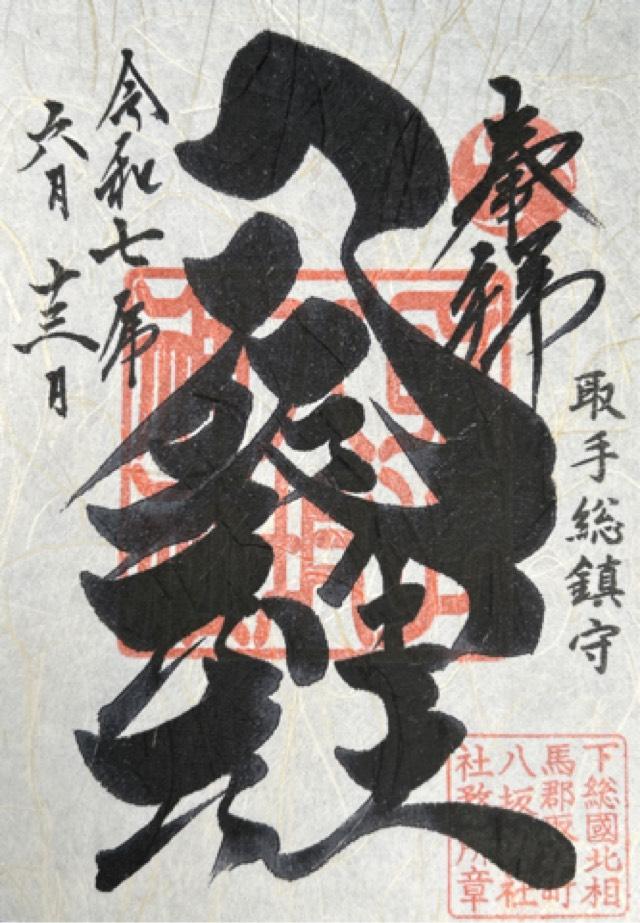 奉拝
取手総鎮守
八坂神社
令和七年
六月十三日
下総國北相
馬郡取手町
八坂神社
社務所章